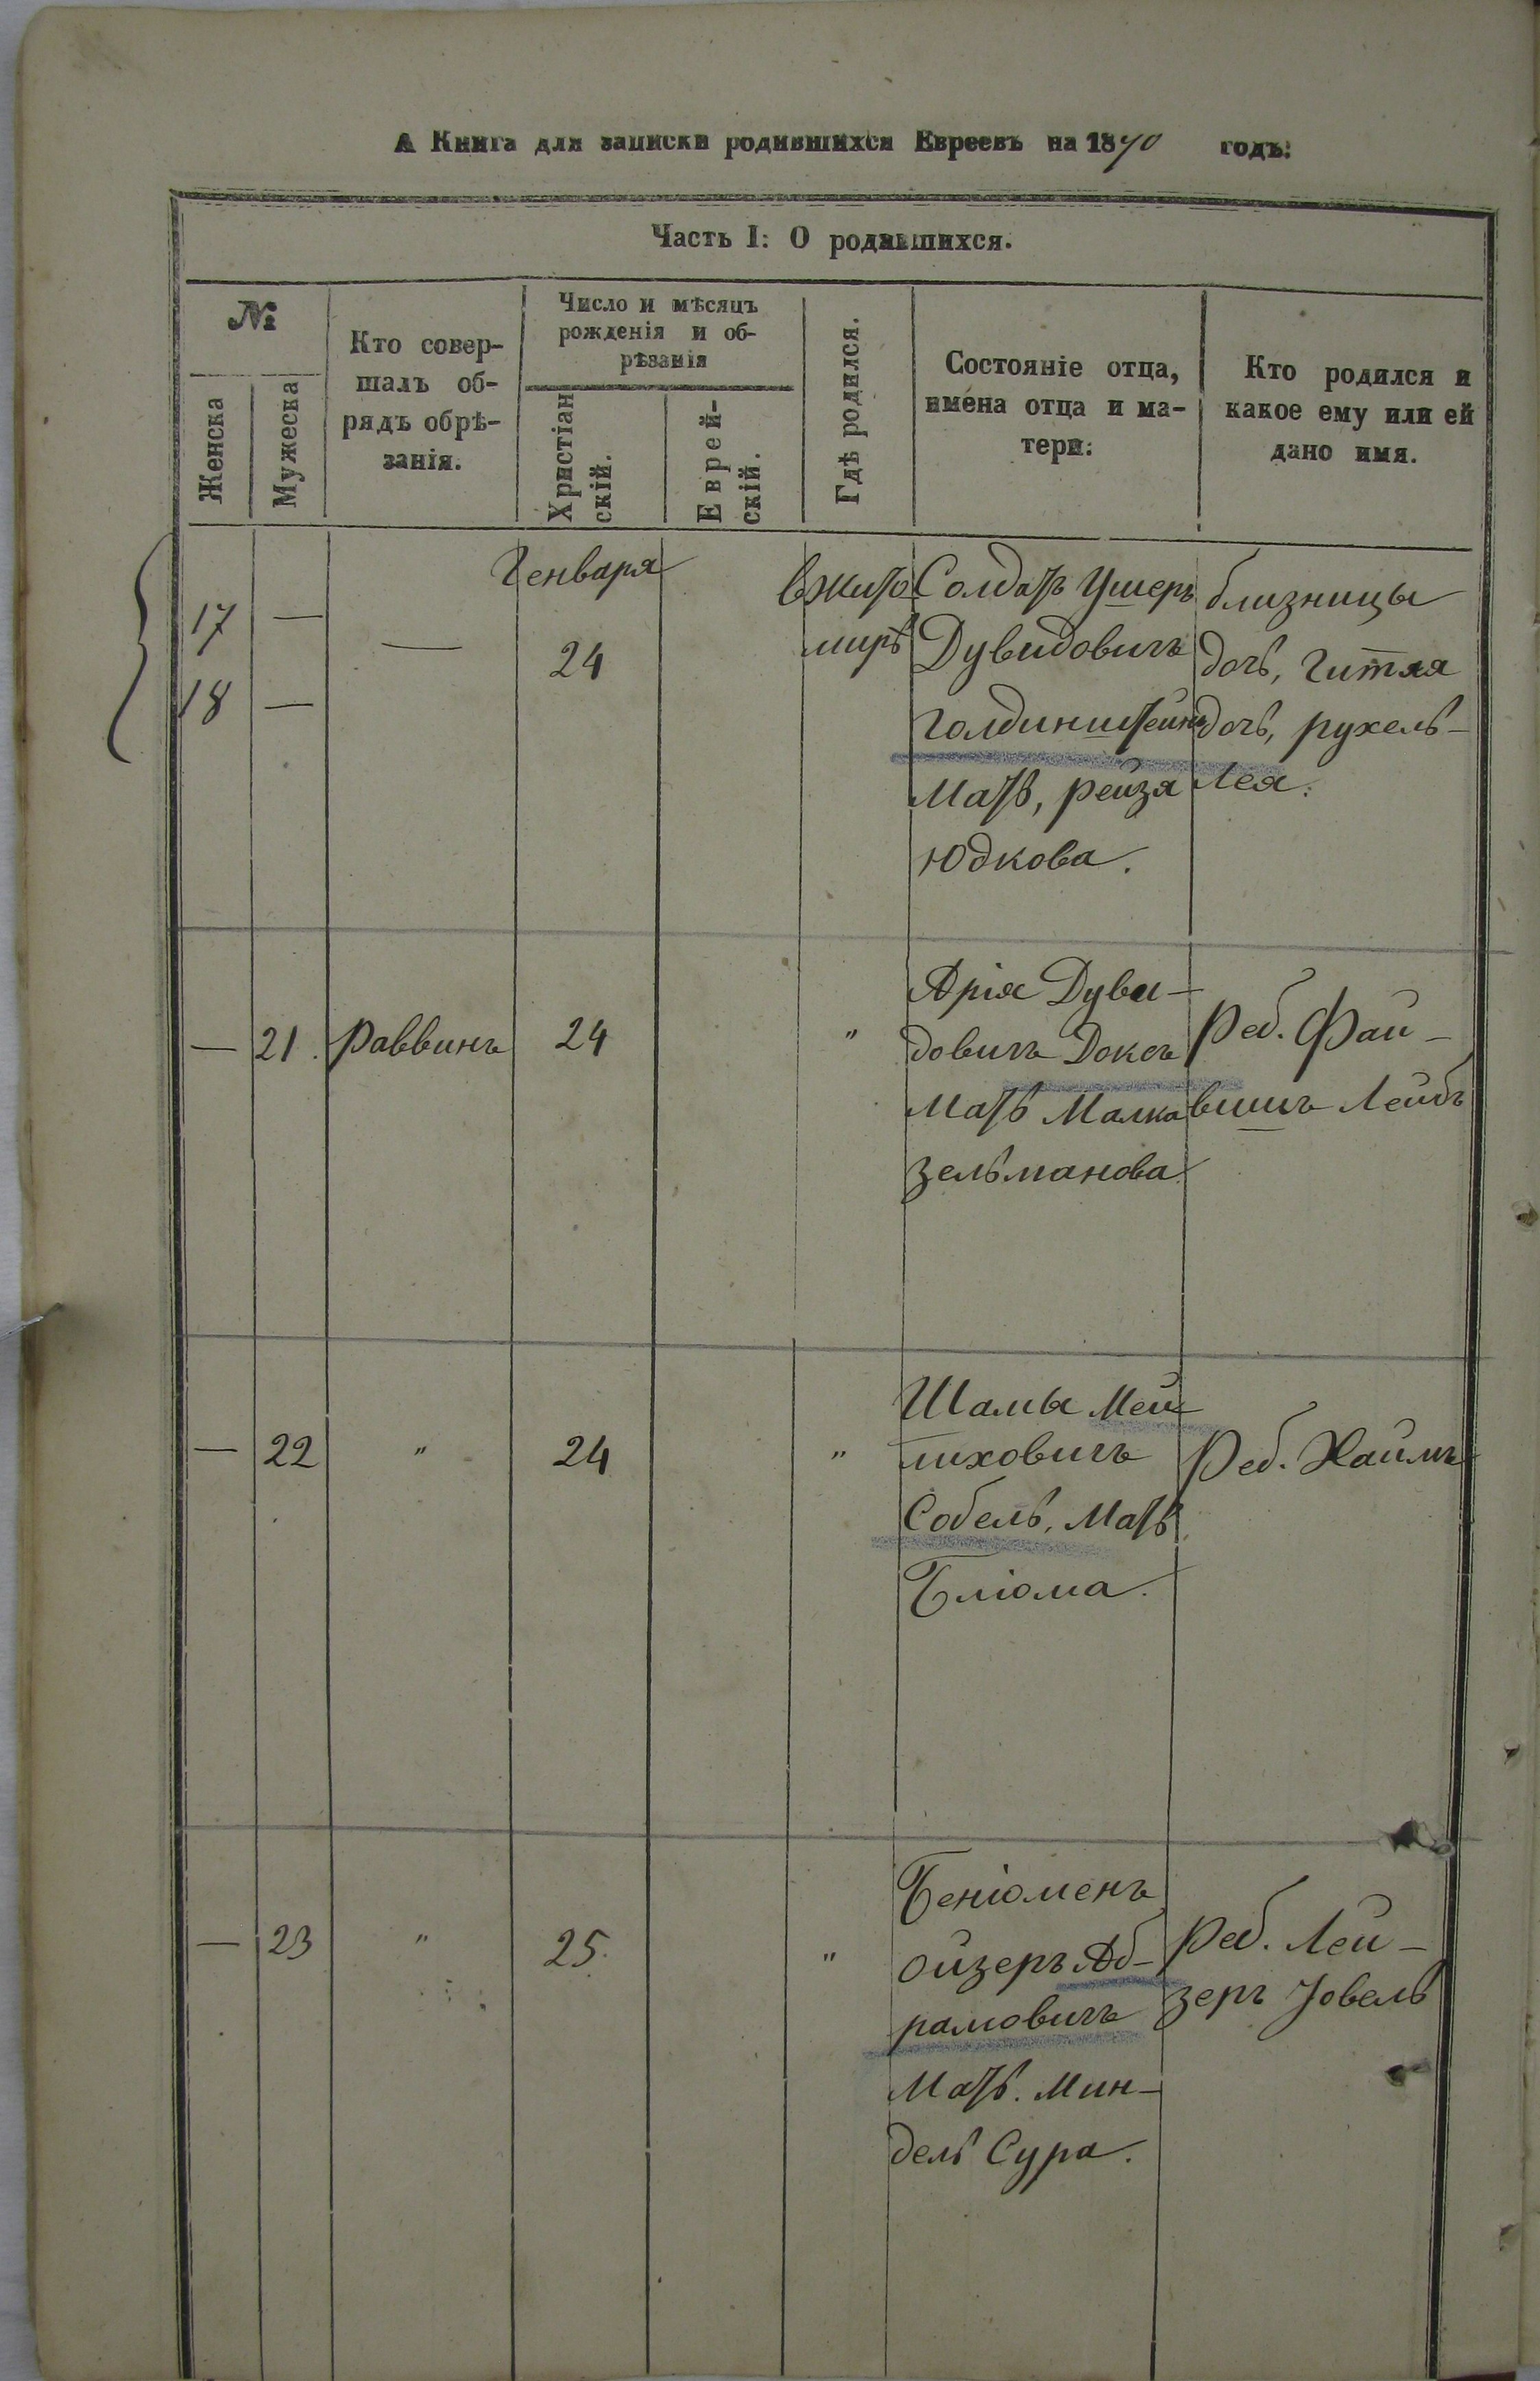 А Книга для записки родившихся Евреевъ на 1870 годъ:
Часть I: О родившихся.
№
Женска
Мужеска
Кто совер-
шалъ об-
рядъ обрѣ-
занія.
Число и мѣсяцъ
рожденія и об-
рѣзанія
Христіан
скій.
Еврей-
скій.
Гдѣ родился.
Состояніе отца,
имена отца и ма-
тери:
Кто родился и
какое ему или ей
дано имя.
17 —
18 —
—
Генваря
24
вжито
мирѣ
Солдатъ Ушеръ
Дувидовичъ
Голдинштейнъ
Мать, рейзя
Юдкова.
близницы
дочь, Гитля
дочь, рухель-
Лея.
— 21. Раввинъ 24 "
Арія Дуви-
довичъ Доксъ
Мать Малка
Зельманова
Реб. Фай-
вишъ Лейбъ
— 22 " 24 "
Шамы Мей
лиховичъ
Собель, Мать
Бліома.
Реб. Хаимъ
— 23 " 25. "
Беніоменъ
Ойзеръ Аб-
рамовичъ
Мать. Мин-
дель Сура.
Реб. Лей-
зеръ Іовель